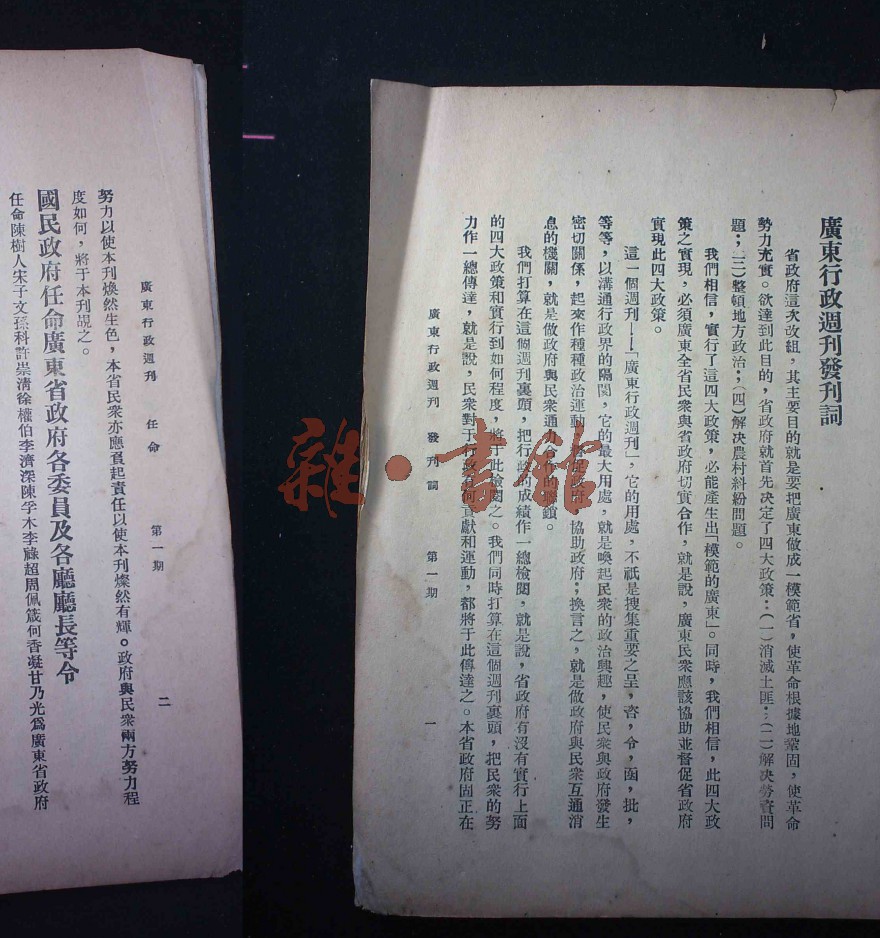 廣東行政週刊發刊詞
省政府這次改組，其主要目的就是要把廣東做成一模範省，使革命根據地鞏固，使革命
勢力充實。欲達到此目的，省政府就首先决定了四大政策：（一）消滅土匪；（二）解决勞資問
題；（三）整頓地方政治；（四）解决農村糾紛問題。
我們相信，實行了這四大政策，必能產生出「模範的廣東」。同時，我們相信，此四大政
策之實現，必須廣東全省民衆與省政府切實合作，就是說，廣東民衆應該協助並督促省政府
實現此四大政策。
這一個週刊——「廣東行政週刊」，它的用處，不祇是搜集重要之呈，咨，令，函，批，
等等，以溝通行政界的隔閡，它的最大用處，就是喚起民衆的政治興趣，使民衆與政府發生
密切關係，起來作種種政治運動，促政府，協助政府；換言之，就是做政府與民衆互通消
息的機關，就是做政府與民衆通力合作的鎖。
我們打算在這個週刊裏頭，把行政的成績作一總檢閱，就是說，省政府有沒有實行上面
的四大政策和實行到如何程度，將于此檢閱之。我們同時打算在這個週刊裏頭，把民衆的努
力作一總傳達，就是說，民衆對于行政有何貢獻和運動，都將于此傳達之。本省政府固正在
廣東行政週刊 發刊詞 第一期 一
廣東行政週刊 任命 第一期 二
努力以使本刊煥然生色，本省民衆亦應負起責任以使本刊燦然有輝。政府與民衆兩方努力程
度如何，將于本刊覘之。
國民政府任命廣東省政府各委員及各廳廳長等令
任命陳樹人宋子文孫科許崇清徐權伯李濟深陳孚木李祿超周佩箴何香凝甘乃光爲廣東省政府
雜·書館